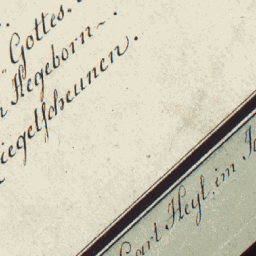 Gottes.
Hegeborn.
iegelscheunen.
Cart Heyl. im